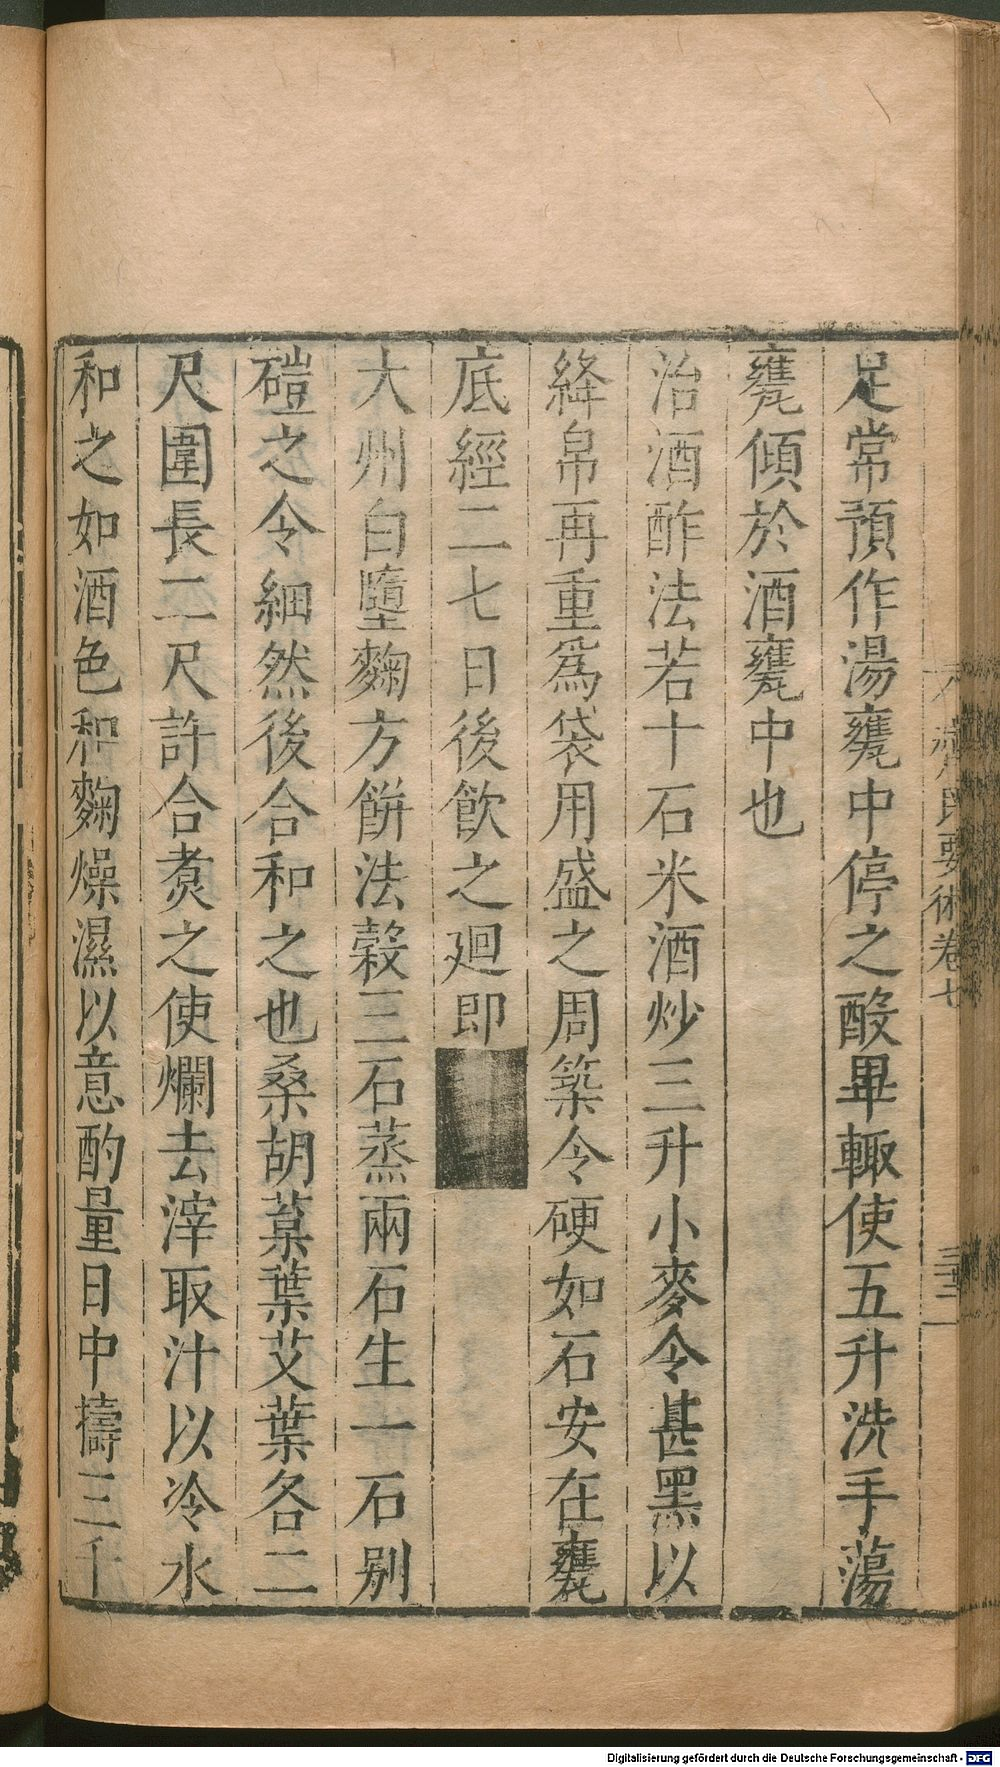 足常預作湯甕中停之酘畢輙使五升洗手蕩
甕傾於酒甕中也
治酒酢法若十石米酒炒三升小麥令甚黑以
絳帛再重爲袋用盛之周築令硬如石安在甕
底經二七日後飲之廻即
大州白墮麴方餅法穀三石蒸兩石生一石别
磑之令細然後合和之也桑胡葈葉艾葉各二
尺圍長二尺許合煑之使爛去滓取汁以冷水
和之如酒色和麴燥濕以意酌量日中擣三千
齊民要術卷七
Digitalisierung gefördert durch die Deutsche Forschungsgemeinschaft - DFG